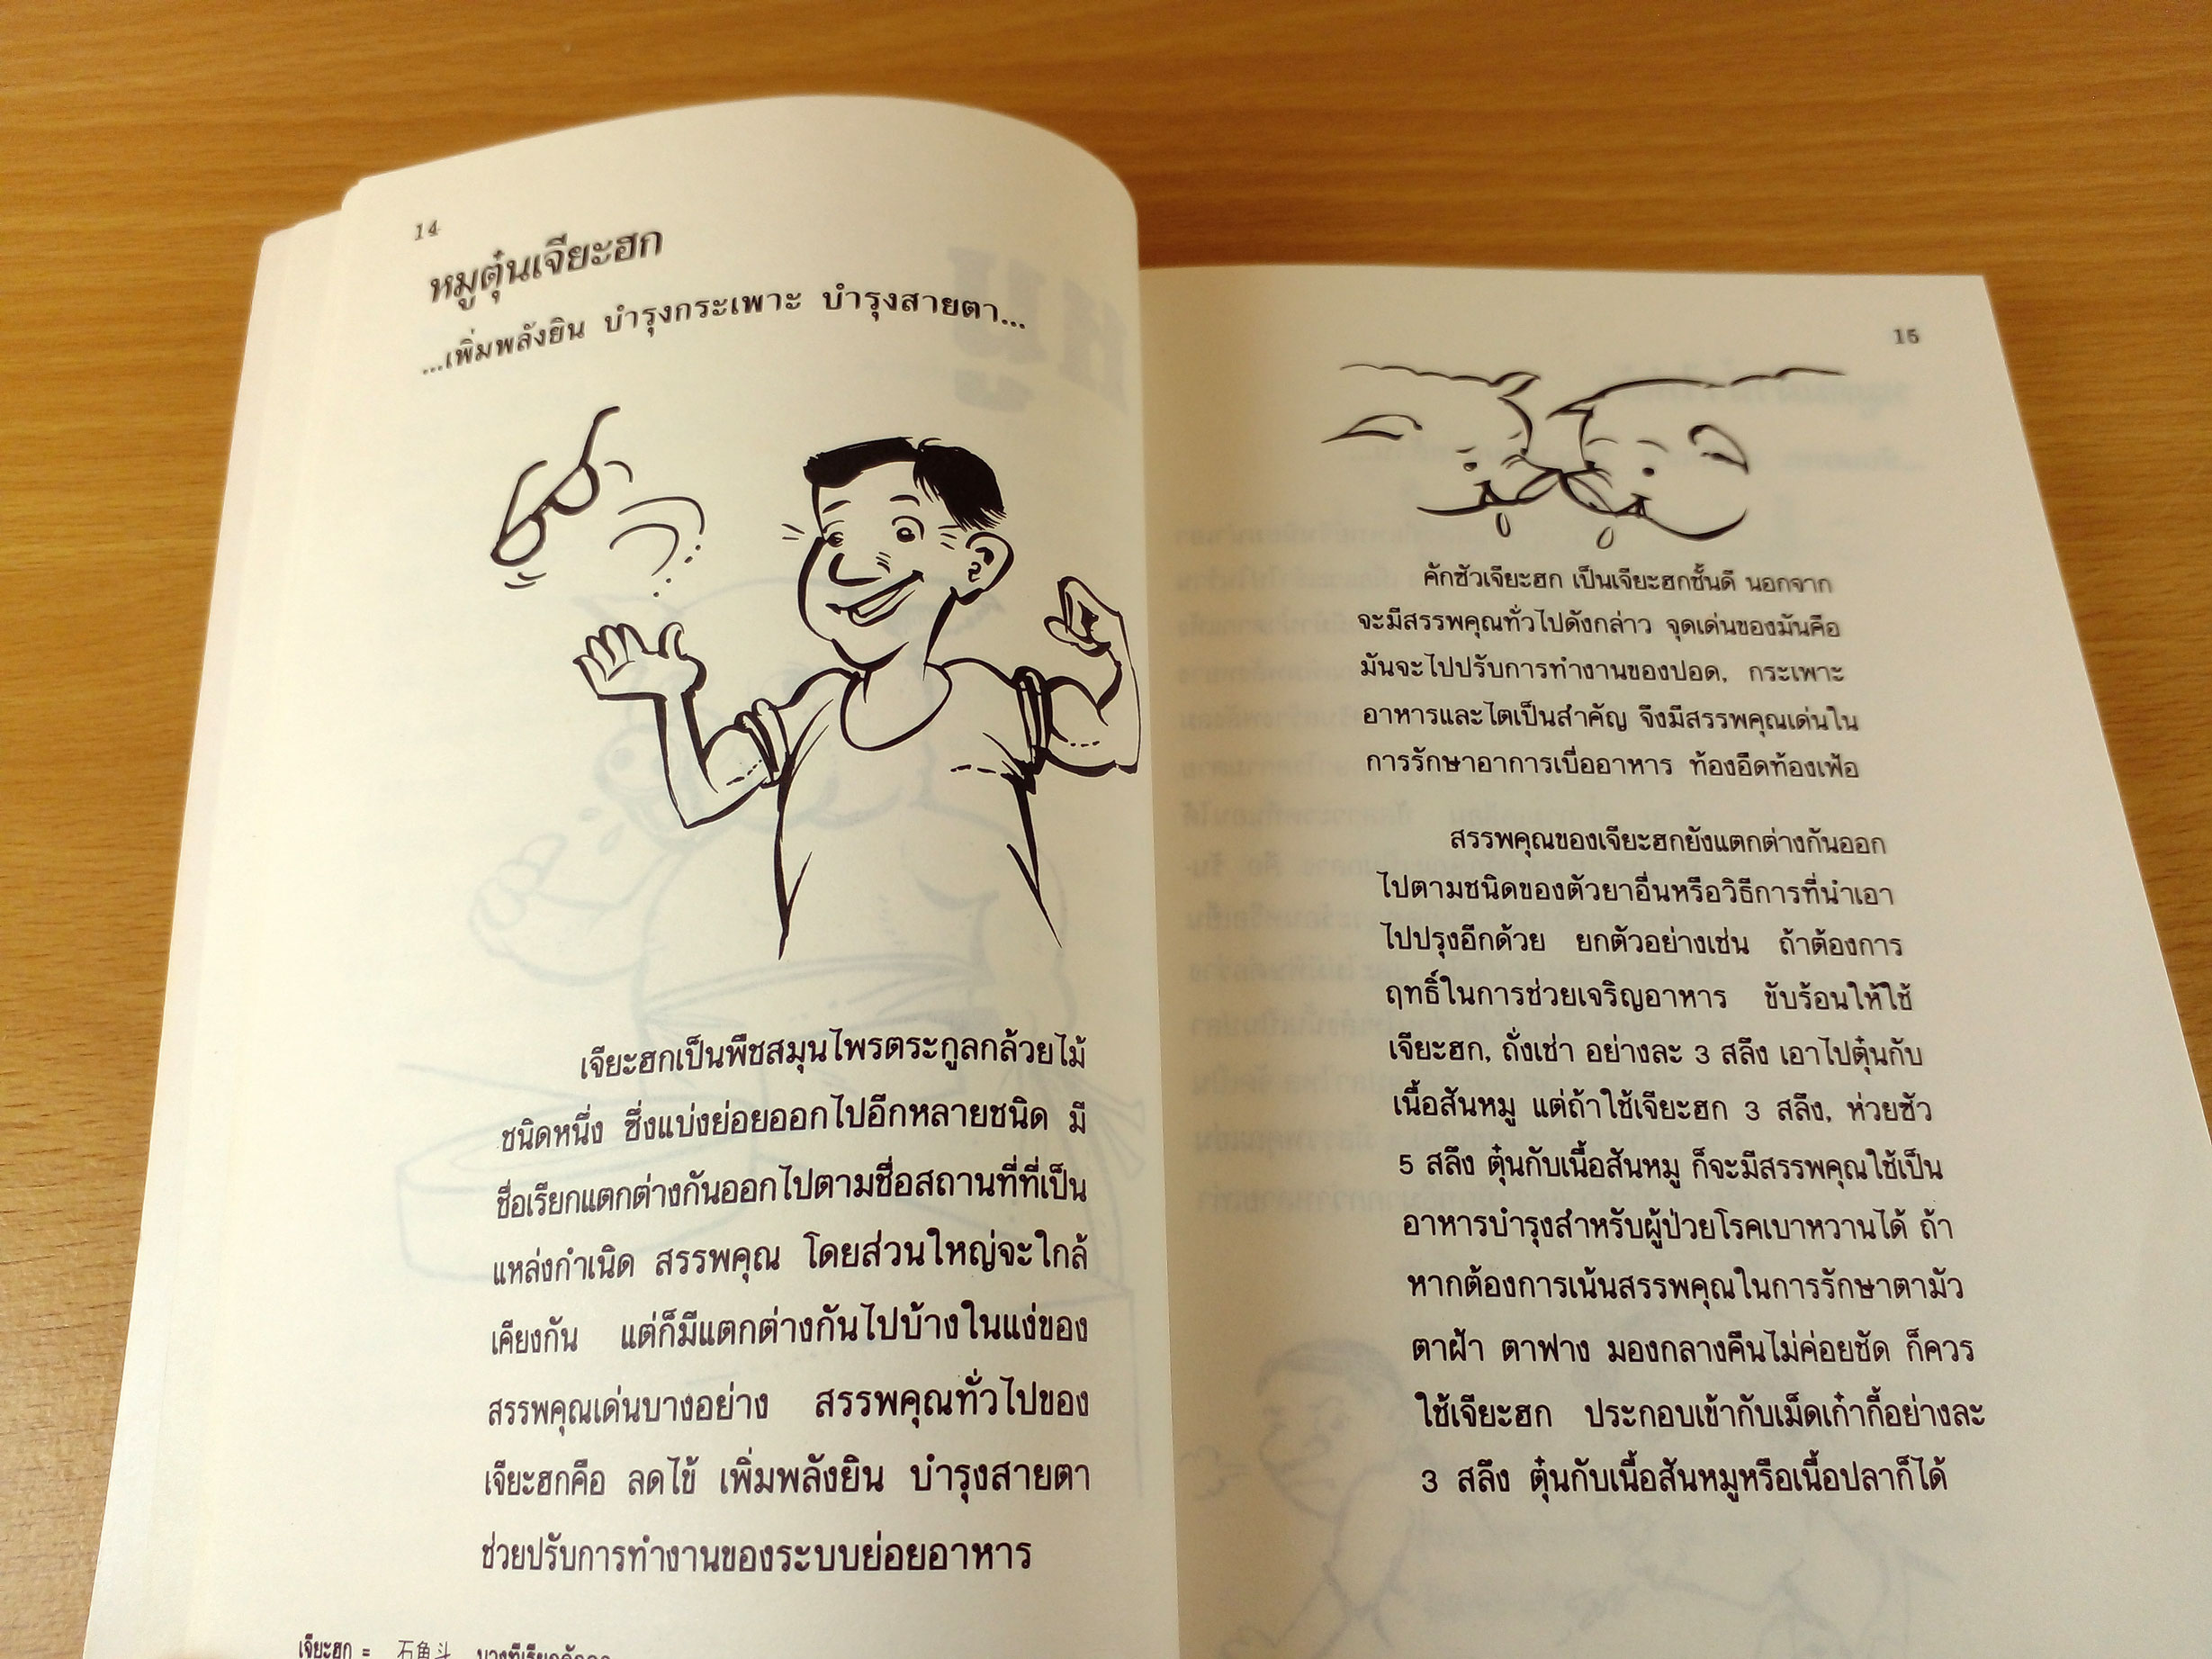 14
หมูตุ๋นเจียะฮก
...เพิ่มพลังยิน บำรุงกระเพาะ บำรุงสายตา...
เจียะฮกเป็นพืชสมุนไพรตระกูลกล้วยไม้
ชนิดหนึ่ง ซึ่งแบ่งย่อยออกไปอีกหลายชนิด มี
ชื่อเรียกแตกต่างกันออกไปตามชื่อสถานที่ที่เป็น
แหล่งกำเนิด สรรพคุณ โดยส่วนใหญ่จะใกล้
เคียงกัน แต่ก็มีแตกต่างกันไปบ้างในแง่ของ
สรรพคุณเด่นบางอย่าง สรรพคุณทั่วไปของ
เจียะฮกคือ ลดไข้ เพิ่มพลังยิน บำรุงสายตา
ช่วยปรับการทำงานของระบบย่อยอาหาร
เจียะฮก = 石角斗
15
คักซัวเจียะฮก เป็นเจียะฮกชั้นดี นอกจาก
จะมีสรรพคุณทั่วไปดังกล่าว จุดเด่นของมันคือ
มันจะไปปรับการทำงานของปอด, กระเพาะ
อาหารและไตเป็นสำคัญ จึงมีสรรพคุณเด่นใน
การรักษาอาการเบื่ออาหาร ท้องอืดท้องเฟ้อ
สรรพคุณของเจียะฮกยังแตกต่างกันออก
ไปตามชนิดของตัวยาอื่นหรือวิธีการที่นำเอา
ไปปรุงอีกด้วย ยกตัวอย่างเช่น ถ้าต้องการ
ฤทธิ์ในการช่วยเจริญอาหาร ขับร้อนให้ใช้
เจียะฮก, ถั่งเช่า อย่างละ 3 สลึง เอาไปตุ๋นกับ
เนื้อสันหมู แต่ถ้าใช้เจียะฮก 3 สลึง, ห่วยซัว
5 สลึง ตุ๋นกับเนื้อสันหมู ก็จะมีสรรพคุณใช้เป็น
อาหารบำรุงสำหรับผู้ป่วยโรคเบาหวานได้ ถ้า
หากต้องการเน้นสรรพคุณในการรักษาตามัว
ตาฝ้า ตาฟาง มองกลางคืนไม่ค่อยชัด ก็ควร
ใช้เจียะฮก ประกอบเข้ากับเม็ดเก๋ากี้อย่างละ
3 สลึง ตุ๋นกับเนื้อสันหมูหรือเนื้อปลาก็ได้